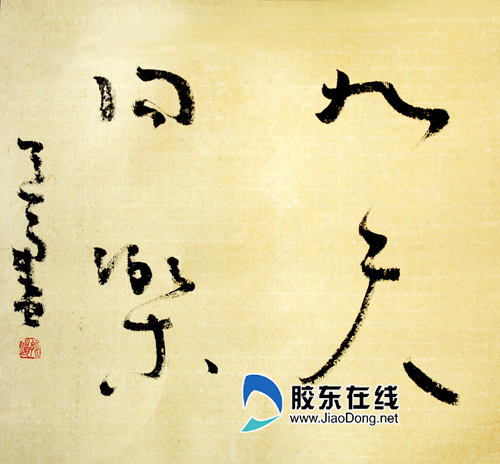 九天
同樂
胶东在线
www.JiaoDong.net